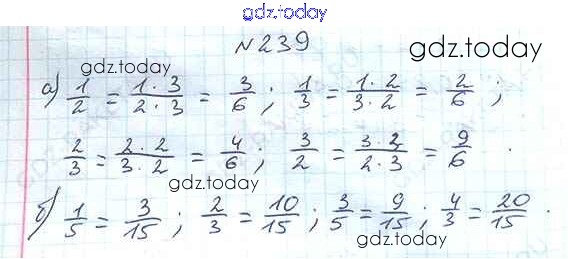 gdz.today
№239
gdz.today
gdz.today
а) 1/2 = 1·3/2·3 = 3/6; 1/3 = 1·2/3·2 = 2/6;
2/3 = 2·2/3·2 = 4/6; 3/2 = 3·3/2·3 = 9/6.
gdz.today
б) 1/5 = 3/15; 2/3 = 10/15; 3/5 = 9/15; 4/3 = 20/15.
gdz.today